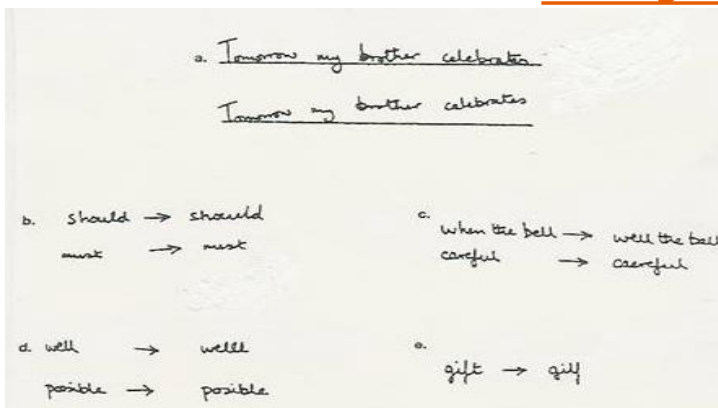 a. Tomorrow my brother celebrates
Tomorrow my brother celebrates
b. should → shoueld
must → muest
c. when the bell → well the bell
careful → caereful
d. well → welll
posible → posible
e. gift → gilf